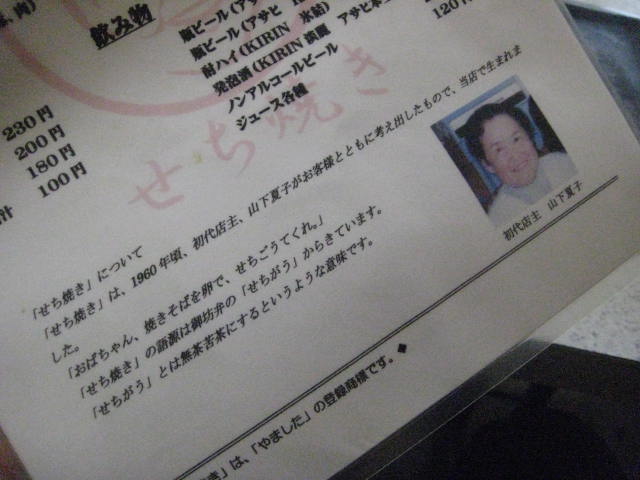 肉)
飲み物
瓶ビール(アサヒ
瓶ビール(アサヒ
酎ハイ(KIRIN 氷結)
発泡酒(KIRIN淡麗 アサヒ本生
ノンアルコールビール
ジュース各種
120円
230円
200円
180円
100円
せち焼き
「せち焼き」について
「せち焼き」は、1960年頃、初代店主、山下夏子がお客様とともに考え出したもので、当店で生まれま
した。
「おばちゃん、焼きそばを卵で、せちごうてくれ。」
「せち焼き」の語源は御坊弁の「せちがう」からきています。
「せちがう」とは無茶苦茶にするというような意味です。
初代店主 山下夏子
き」は、「やました」の登録商標です。◆